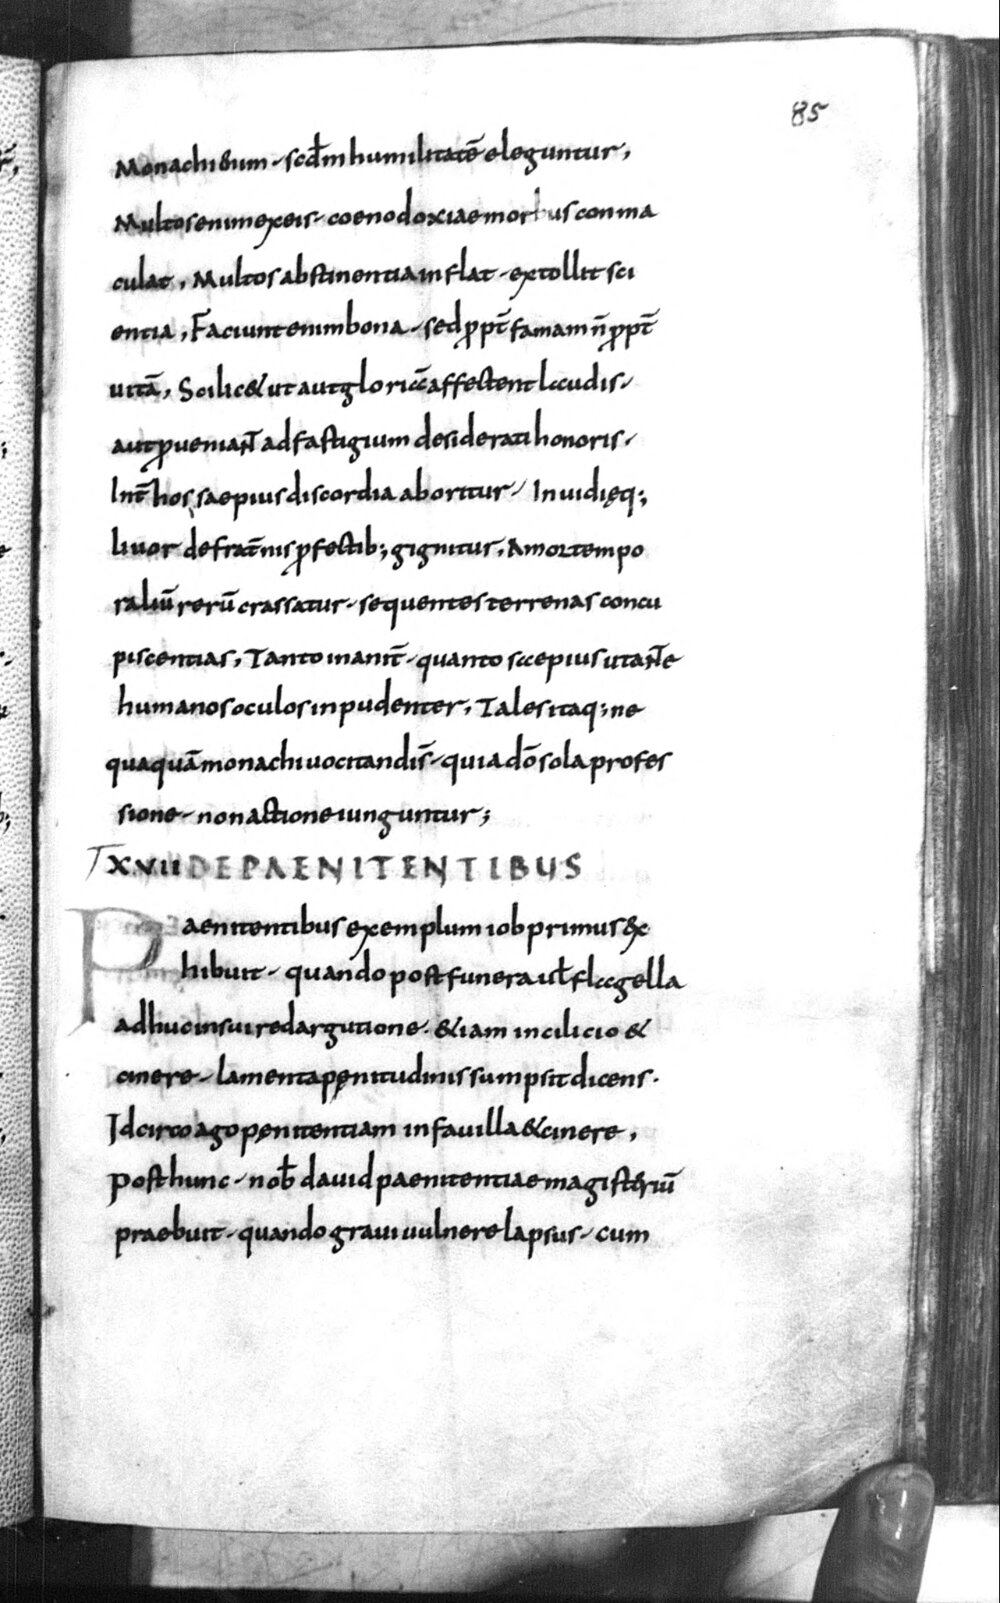 85
Monachi dum - scdm humilitatē eleguntur,
Multos enim ex eis - coenodoxiae morbus con ma
culat, Multos abstinentia inflat - extollit sci
entia, Faciunt enim bona - sed ꝓpt̄ famam n̄ ꝓpt̄
uitā, Scilic& ut aut gloriā affectent laudis -
aut ꝓueniant ad fastigium desiderati honoris -
Int̄ hos saepius discordia aboritur - Inuidięq;
liuor de frat̄nis ꝓfectib; gignitur, Amor tempo
raliū rerū crassatur - sequentes terrenas concu
piscentias, Tanto inanit̄ - quanto saepius utante
humanos oculos inpudenter, Tales itaq; ne
quaquā monachi uocitandis̄ - quia dō sola profes
sione - non actione iunguntur;
XVII DE PAENITENTIBUS
Paenitentibus exemplum iob primus ex
hibuit - quando post funera ul̄ flagella
adhuc in sui redargutione. &iam in cilicio &
cinere - lamenta pęnitudinis sumpsit dicens.
Idcirco ago pęnitentiam in fauilla & cinere,
Post hunc - nob̄ dauid paenitentiae magisteriū
praebuit - quando graui uulnere lapsus - cum